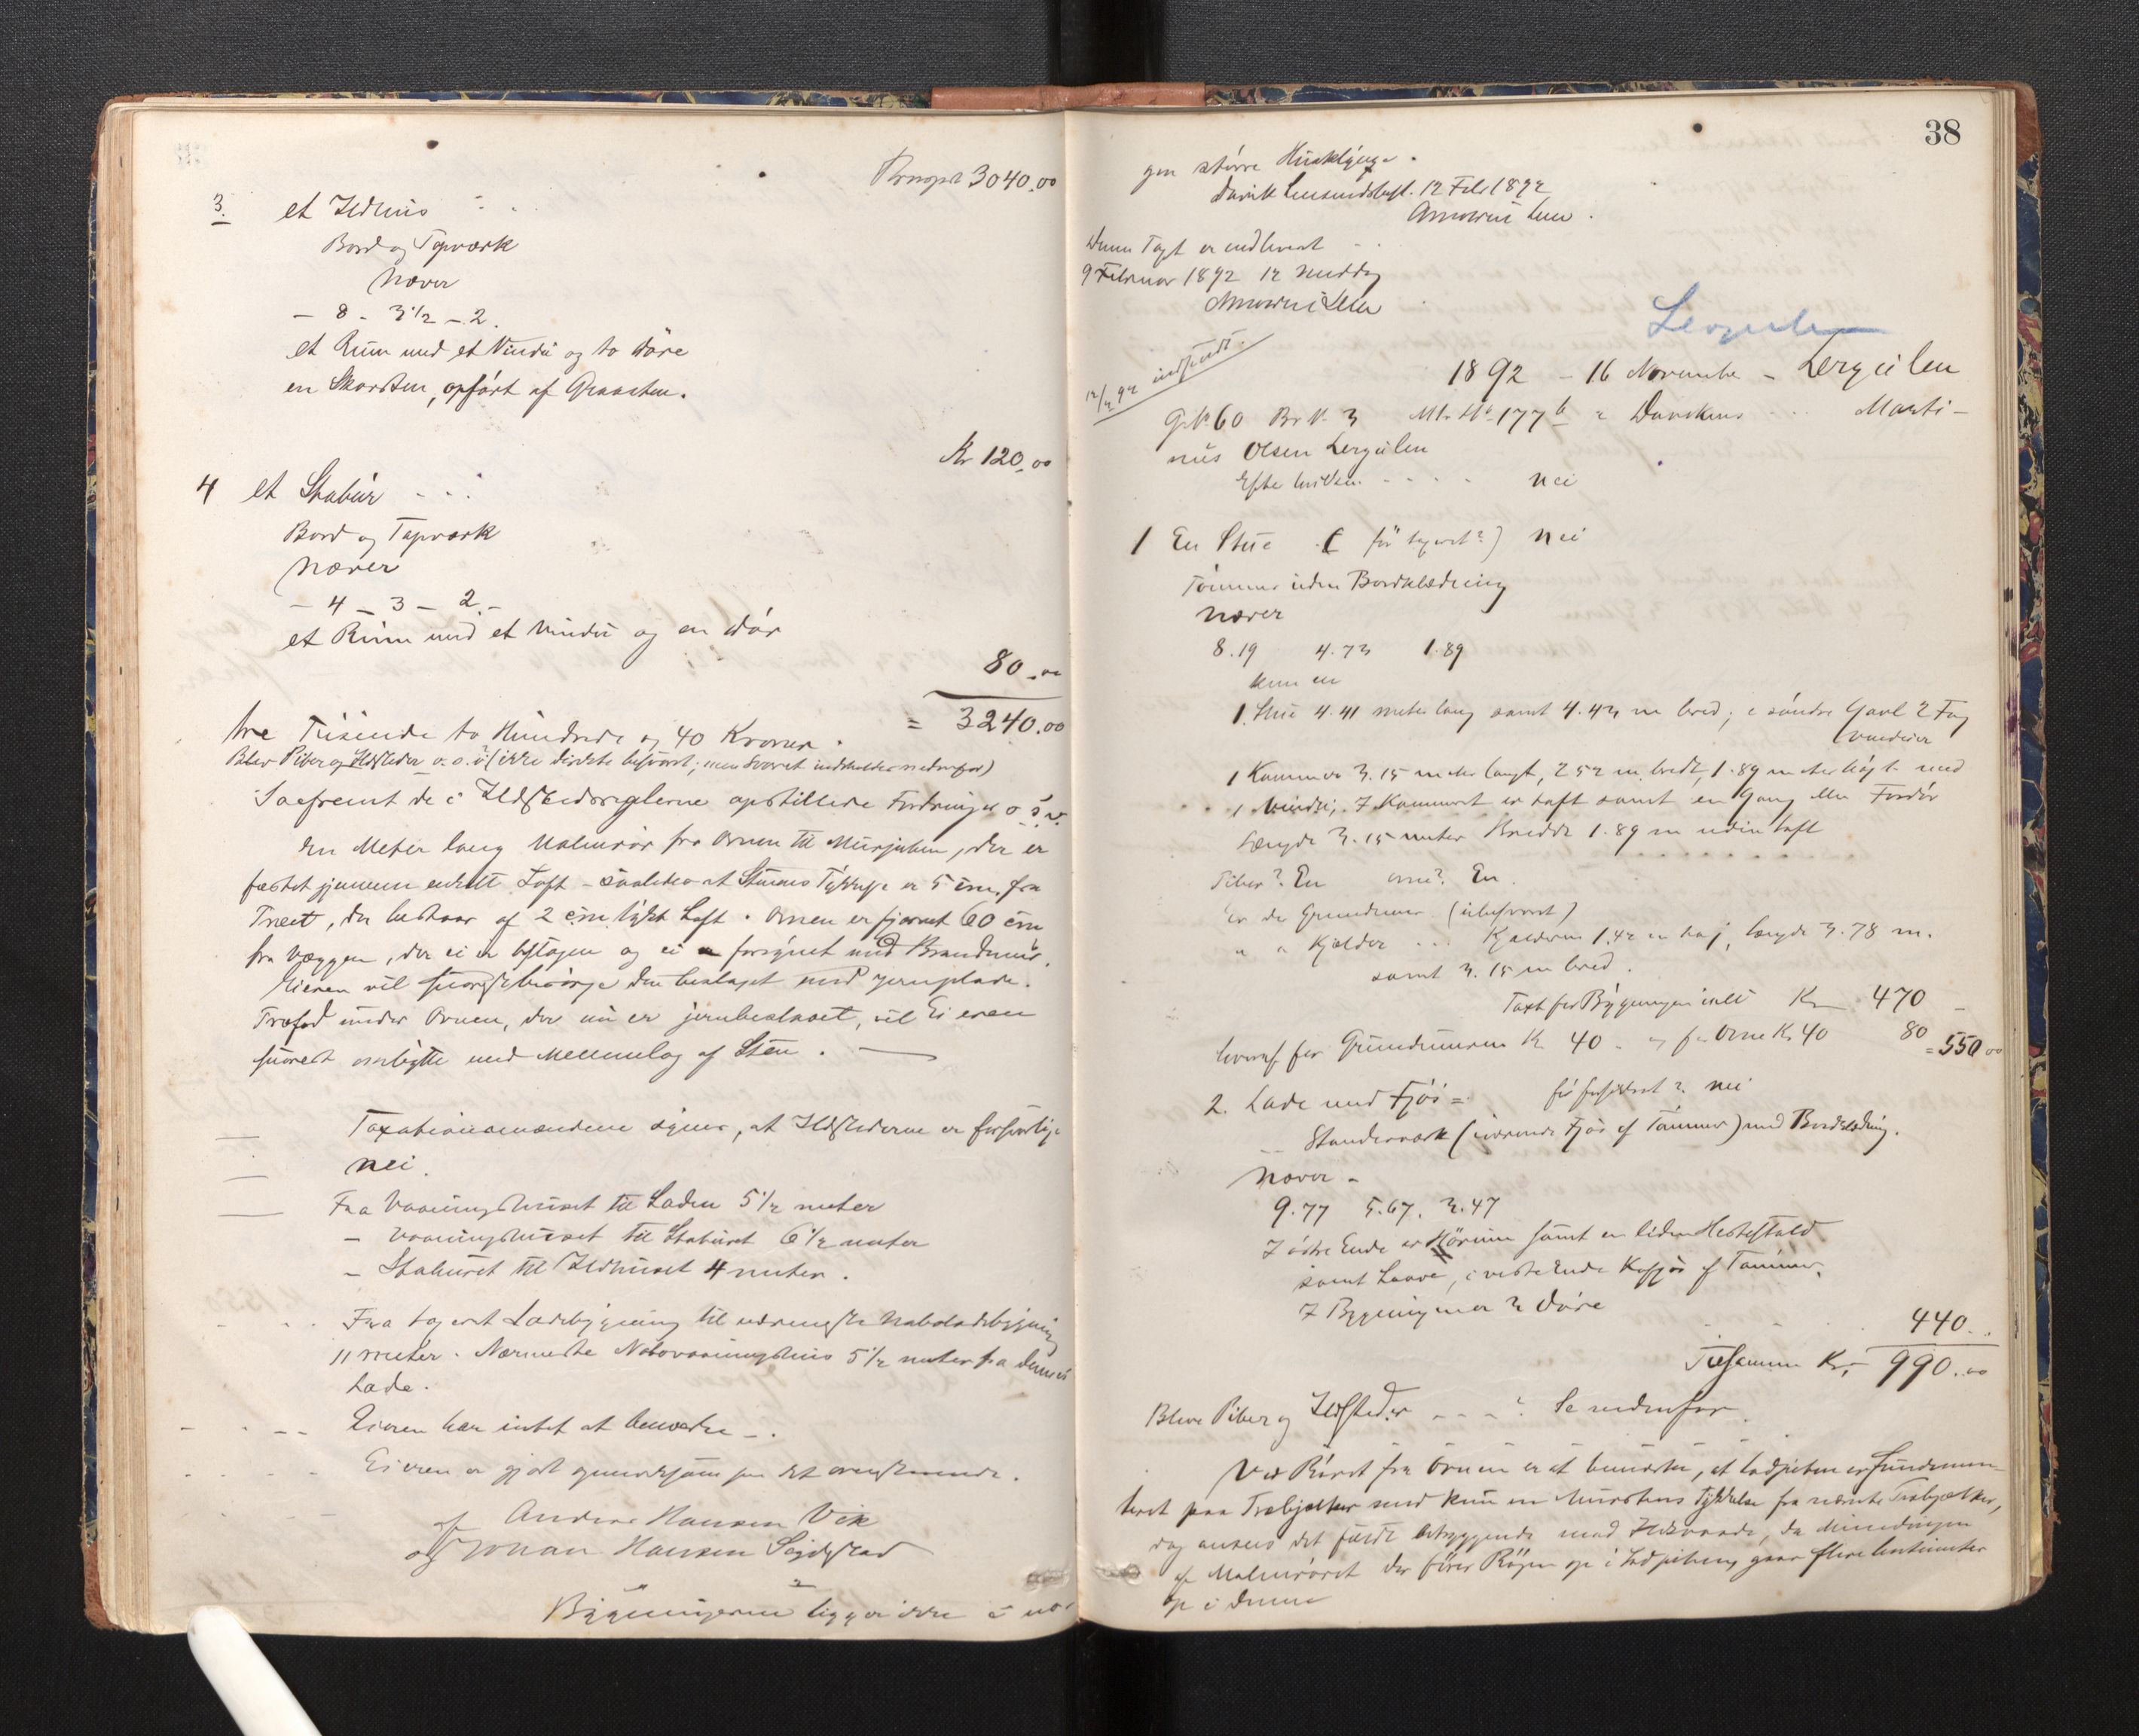 3040.00
3. et Ildhus
Bord og Tapværk
Næver
- 8 - 3 1/2 - 2.
et Rum med et Vindu og to Döre
en Skorsten, opfört af Graasten.
Kr 120.00
4 et Stabur - - -
Bord og Tapværk
Næver
- 4 - 3 - 2 -
et Rum med et Vindu og en Dör
80.00
= 3240.00
tre Tusinde to Hundrede og 40 Kroner.
Blev Piber og Ildsteder o. s. v? (ikke direkte besvart; men Svaret indeholdes nedenfor)
Saafremt de i Ildstedsreglerne opstillede Fordringer o s v.
En Meter lang Malmrör fra Ovnen til Murpiben, der er
fæstet gjennem enkelt Loft - saaledes at Stenens Tykkelse er 5 cm. fra
Træet, der bestaar af 2 cm tykt Loft. Ovnen er fjernet 60 cm
fra Væggen, der ei er beslagen og ei forsynet med Brandmur.
Eieren vil snarest besörge den beslaget med Jernplade.
Træfod under Ovnen, der nu er jernbeslaaet, vil Eieren
snarest ombytte med Mellemlag af Sten. -
Taxationsmændene siger, at Ildstederne er forsvarlige
nei.
Fra Vaaningshuset til Laden 5 1/2 meter
- Vaaningshuset til Staburet 6 1/2 meter
- Staburet til Ildhuset 4 meter.
Fra tageret Ladebygning til nærmeste Naboladebygning
11 meter. Nærmeste Nabovaaningshus 5 1/2 meter fra dennes
Lade.
Eieren har intet at bemærke -.
Eieren er gjort opmærksom paa det ovenstaaende.
af Anders Hansen Vik
og Johan Hansen Seljestad
Bygningerne ligger ikke i no-
38
gen större Husklynge.
Davik Lensmandsbest. 12 Feb 1892
Denne Taxt er indleveret
9 Februar 1892 12 Middag
12/2 92 indsendt.
Lergulen
1892 - 16 November - Lergulen
G.No 60 Br.N. 3 Mtr No 177 b i Davikens - - - Marti-
nus Olsen Lergulen
Efter hvilken - - - - nei
1 En Stue (för taxeret?) nei
Tömmer uden Bordklædning
Næver
8.19 4.73 1.89
kun en
1. Stue 4.41 meter lang samt 4.43 m bred; i söndre Gavl 2 Fag
Vinduer
1 Kammer 3.15 meter langt, 2 52 m. bredt, 1.89 meter höit med
1 Vindu; I Kammeret er Loft samt en Gang eller Fordör
Længde 3.15 meter Bredde 1.89 m uden Loft
Piber? En Ovne? En.
Er der Grundmur (ubesvaret)
" " Kjelder - - - Kjelderen 1.42 m høi, længde 3.78 m.
samt 3.15 m bred.
Taxt for Bygningen ialt Kr 470
hvoraf for Grundmuren Kr 40 - og for Ovne Kr 40 80 = 550 00
2. Lade med Fjös = för forsikret? nei
Standerværk (værende Fjös af Tömmer) med Bordklædning.
Næver -
9.77 5.67. 3.47
I östre Ende er Hörum samt en liden Hestestald
samt Laave, i vestre Ende Kofjös af Tömmer.
I Bygningen er 3 Döre
440.
Tilsammen Kr. 990.00
Bleve Piber og Ildsteder - - - ? Se nedenfor.
Ved Röret fra Ovnen er at bemærke, at Ladpiben er fundamen-
teret paa Træbjelker med kun en Murstens Tykkelse fra nærmeste Træbjelker,
dog ansees det fuldt betryggende mod Ildsvaade, da Mundingen
af Malmröret der förer Rögen op i Ladpiben, gaar flere Centimeter
op i denne